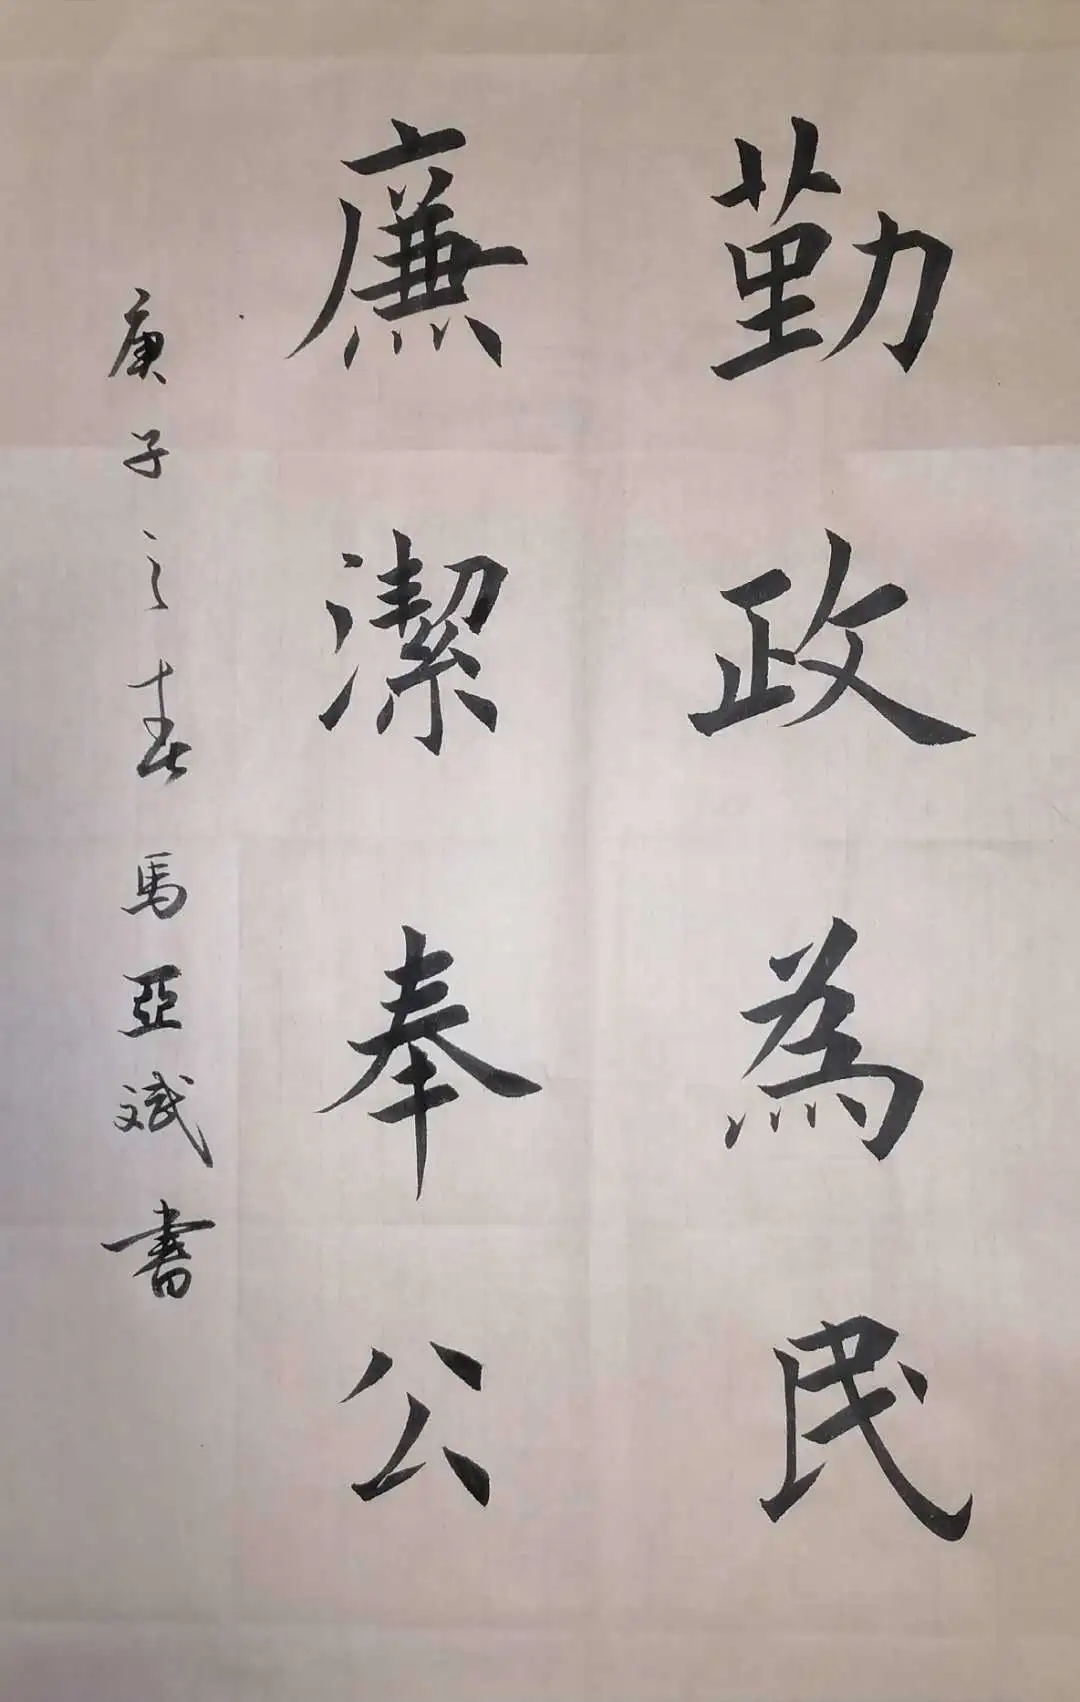 勤政為民
廉潔奉公
庚子之春馬亞斌書